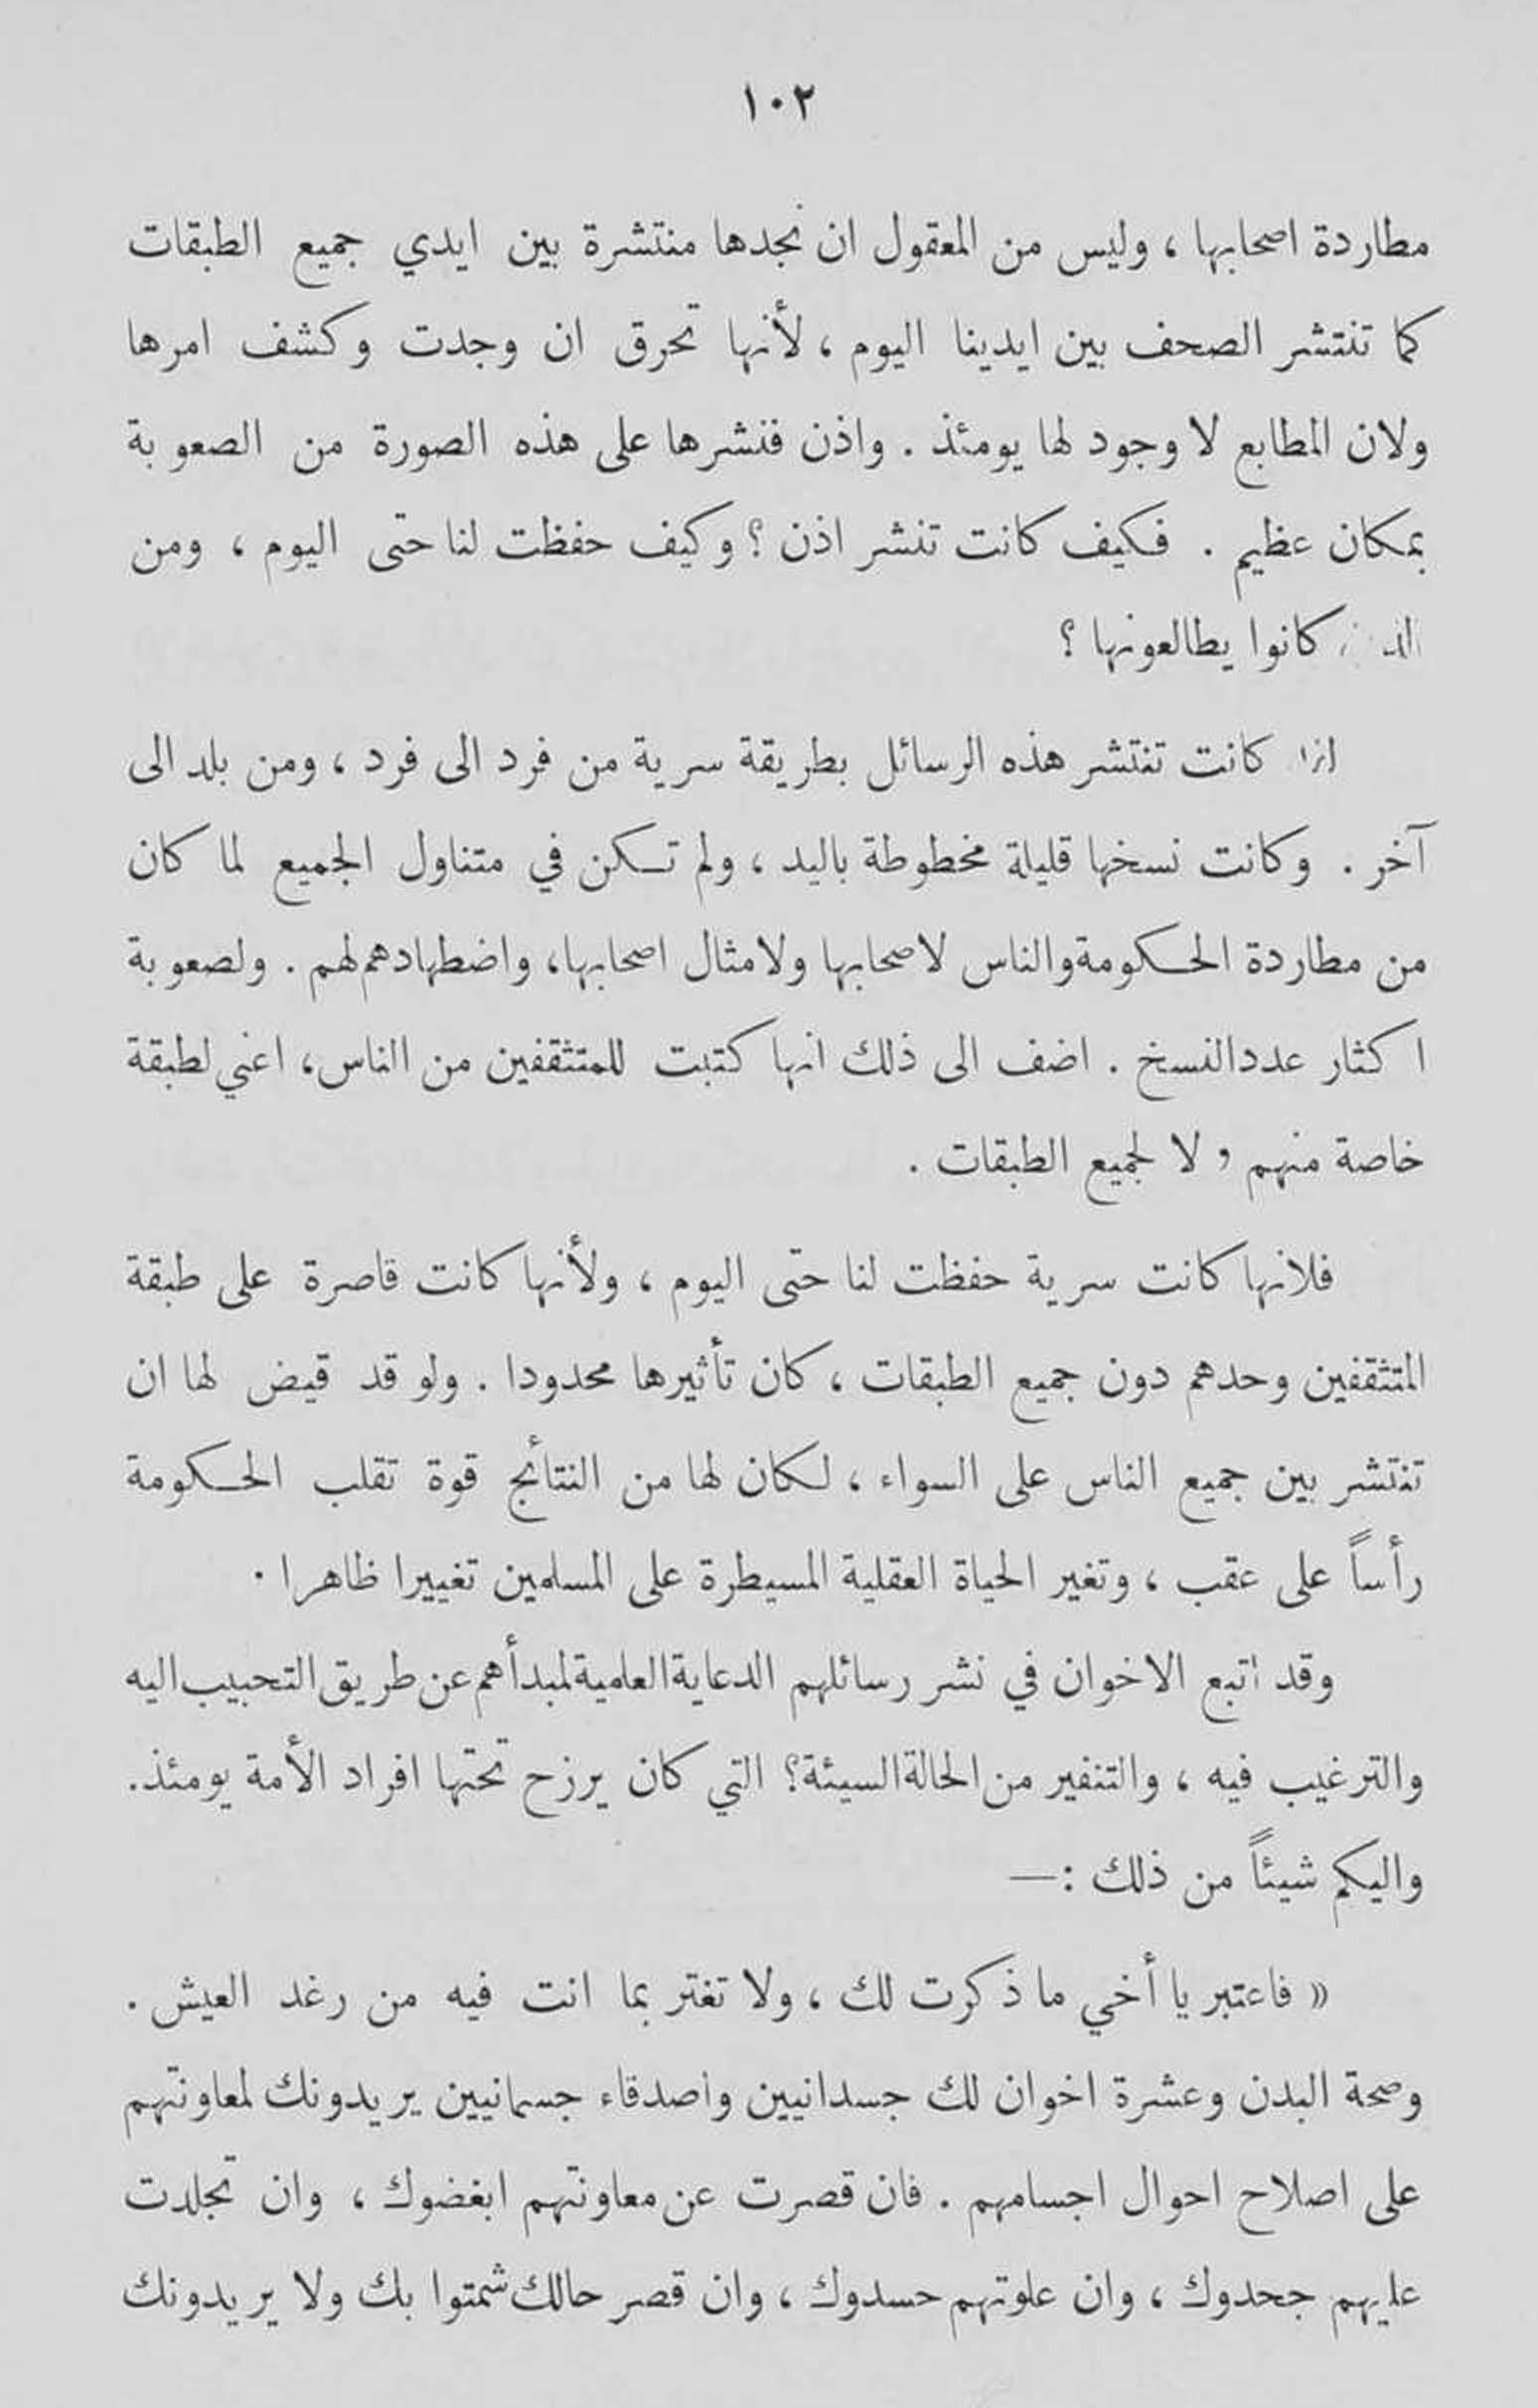 ١٠٢
مطاردة اصحابها ، وليس من المعقول ان نجدها منتشرة بين ايدي جميع الطبقات
كما تنتشر الصحف بين ايدينا اليوم ، لأنها تحرق ان وجدت وكشف امرها
ولان المطابع لا وجود لها يومئذ . واذن فنشرها على هذه الصورة من الصعوبة
بمكان عظيم . فكيف كانت تنشر اذن ؟ وكيف حفظت لنا حتى اليوم ، ومن
كانوا يطالعونها ؟
كانت تنتشر هذه الرسائل بطريقة سرية من فرد الى فرد ، ومن بلد الى
آخر . وكانت نسخها قليلة مخطوطة باليد ، ولم تكن في متناول الجميع لما كان
من مطاردة الحكومة والناس لاصحابها ولامثال اصحابها، واضطهادهم لهم . ولصعوبة
اكثار عدد النسخ . اضف الى ذلك انها كتبت للمتثقفين من الناس، اعني لطبقة
خاصة منهم ولا لجميع الطبقات .
فلانها كانت سرية حفظت لنا حتى اليوم ، ولأنها كانت قاصرة على طبقة
المتثقفين وحدهم دون جميع الطبقات ، كان تأثيرها محدودا . ولو قد قيض لها ان
تنتشر بين جميع الناس على السواء ، لكان لها من النتائج قوة تقلب الحكومة
رأساً على عقب ، وتغير الحياة العقلية المسيطرة على المسلمين تغييرا ظاهرا .
وقد اتبع الاخوان في نشر رسائلهم الدعاية العامية لمبدأهم عن طريق التحبيب اليه
والترغيب فيه ، والتنفير من الحالة السيئة؟ التي كان يرزح تحتها افراد الأمة يومئذ.
واليكم شيئاً من ذلك :—
« فاعتبر يا أخي ما ذكرت لك ، ولا تغتر بما انت فيه من رغد العيش .
وصحة البدن وعشرة اخوان لك جسدانيين واصدقاء جسمانيين يريدونك لمعاونتهم
على اصلاح احوال اجسامهم . فان قصرت عن معاونتهم ابغضوك ، وان تجلدت
عليهم جحدوك ، وان علوتهم حسدوك ، وان قصر حالك شمتوا بك ولا يريدونك